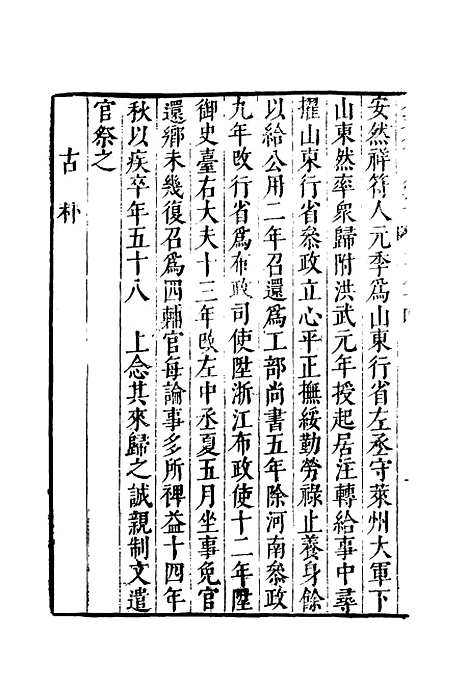 安然祥符人元季爲山東行省左丞守萊州大軍下
山東然率衆歸附洪武元年授起居注轉給事中尋
擢山東行省叅政立心平正撫綏勤勞祿止養身餘
以給公用二年召還爲工部尚書五年除河南叅政
九年改行省爲布政司使陞浙江布政使十二年陞
御史臺右大夫十三年改左中丞夏五月坐事免官
還鄉未幾復召爲四輔官每論事多所裨益十四年
秋以疾卒年五十八 上念其來歸之誠親制文遣
官祭之
古朴